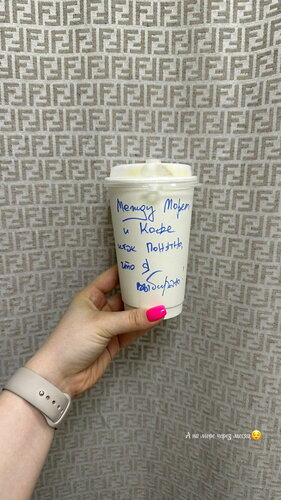 Между Морем
и Кофе
итак понятно,
что я
выбираю
А на море через месяц😉